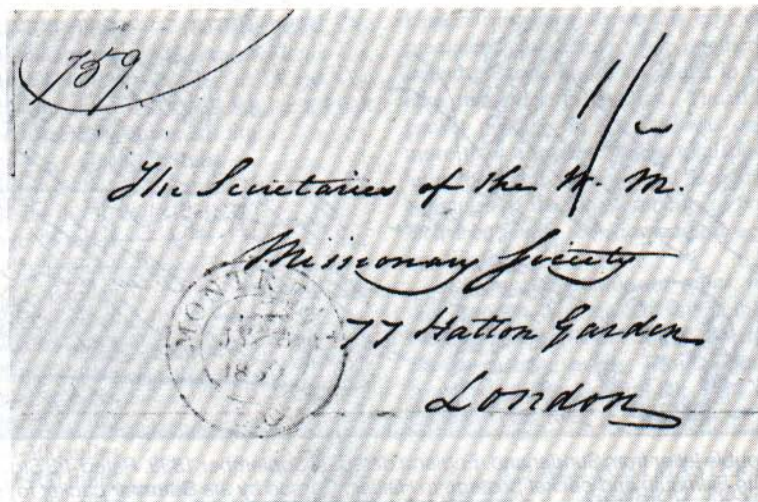 759
1/
The Secretaries of the W. M.
Missionary Society
77 Hatton Garden
London
MONTREAL